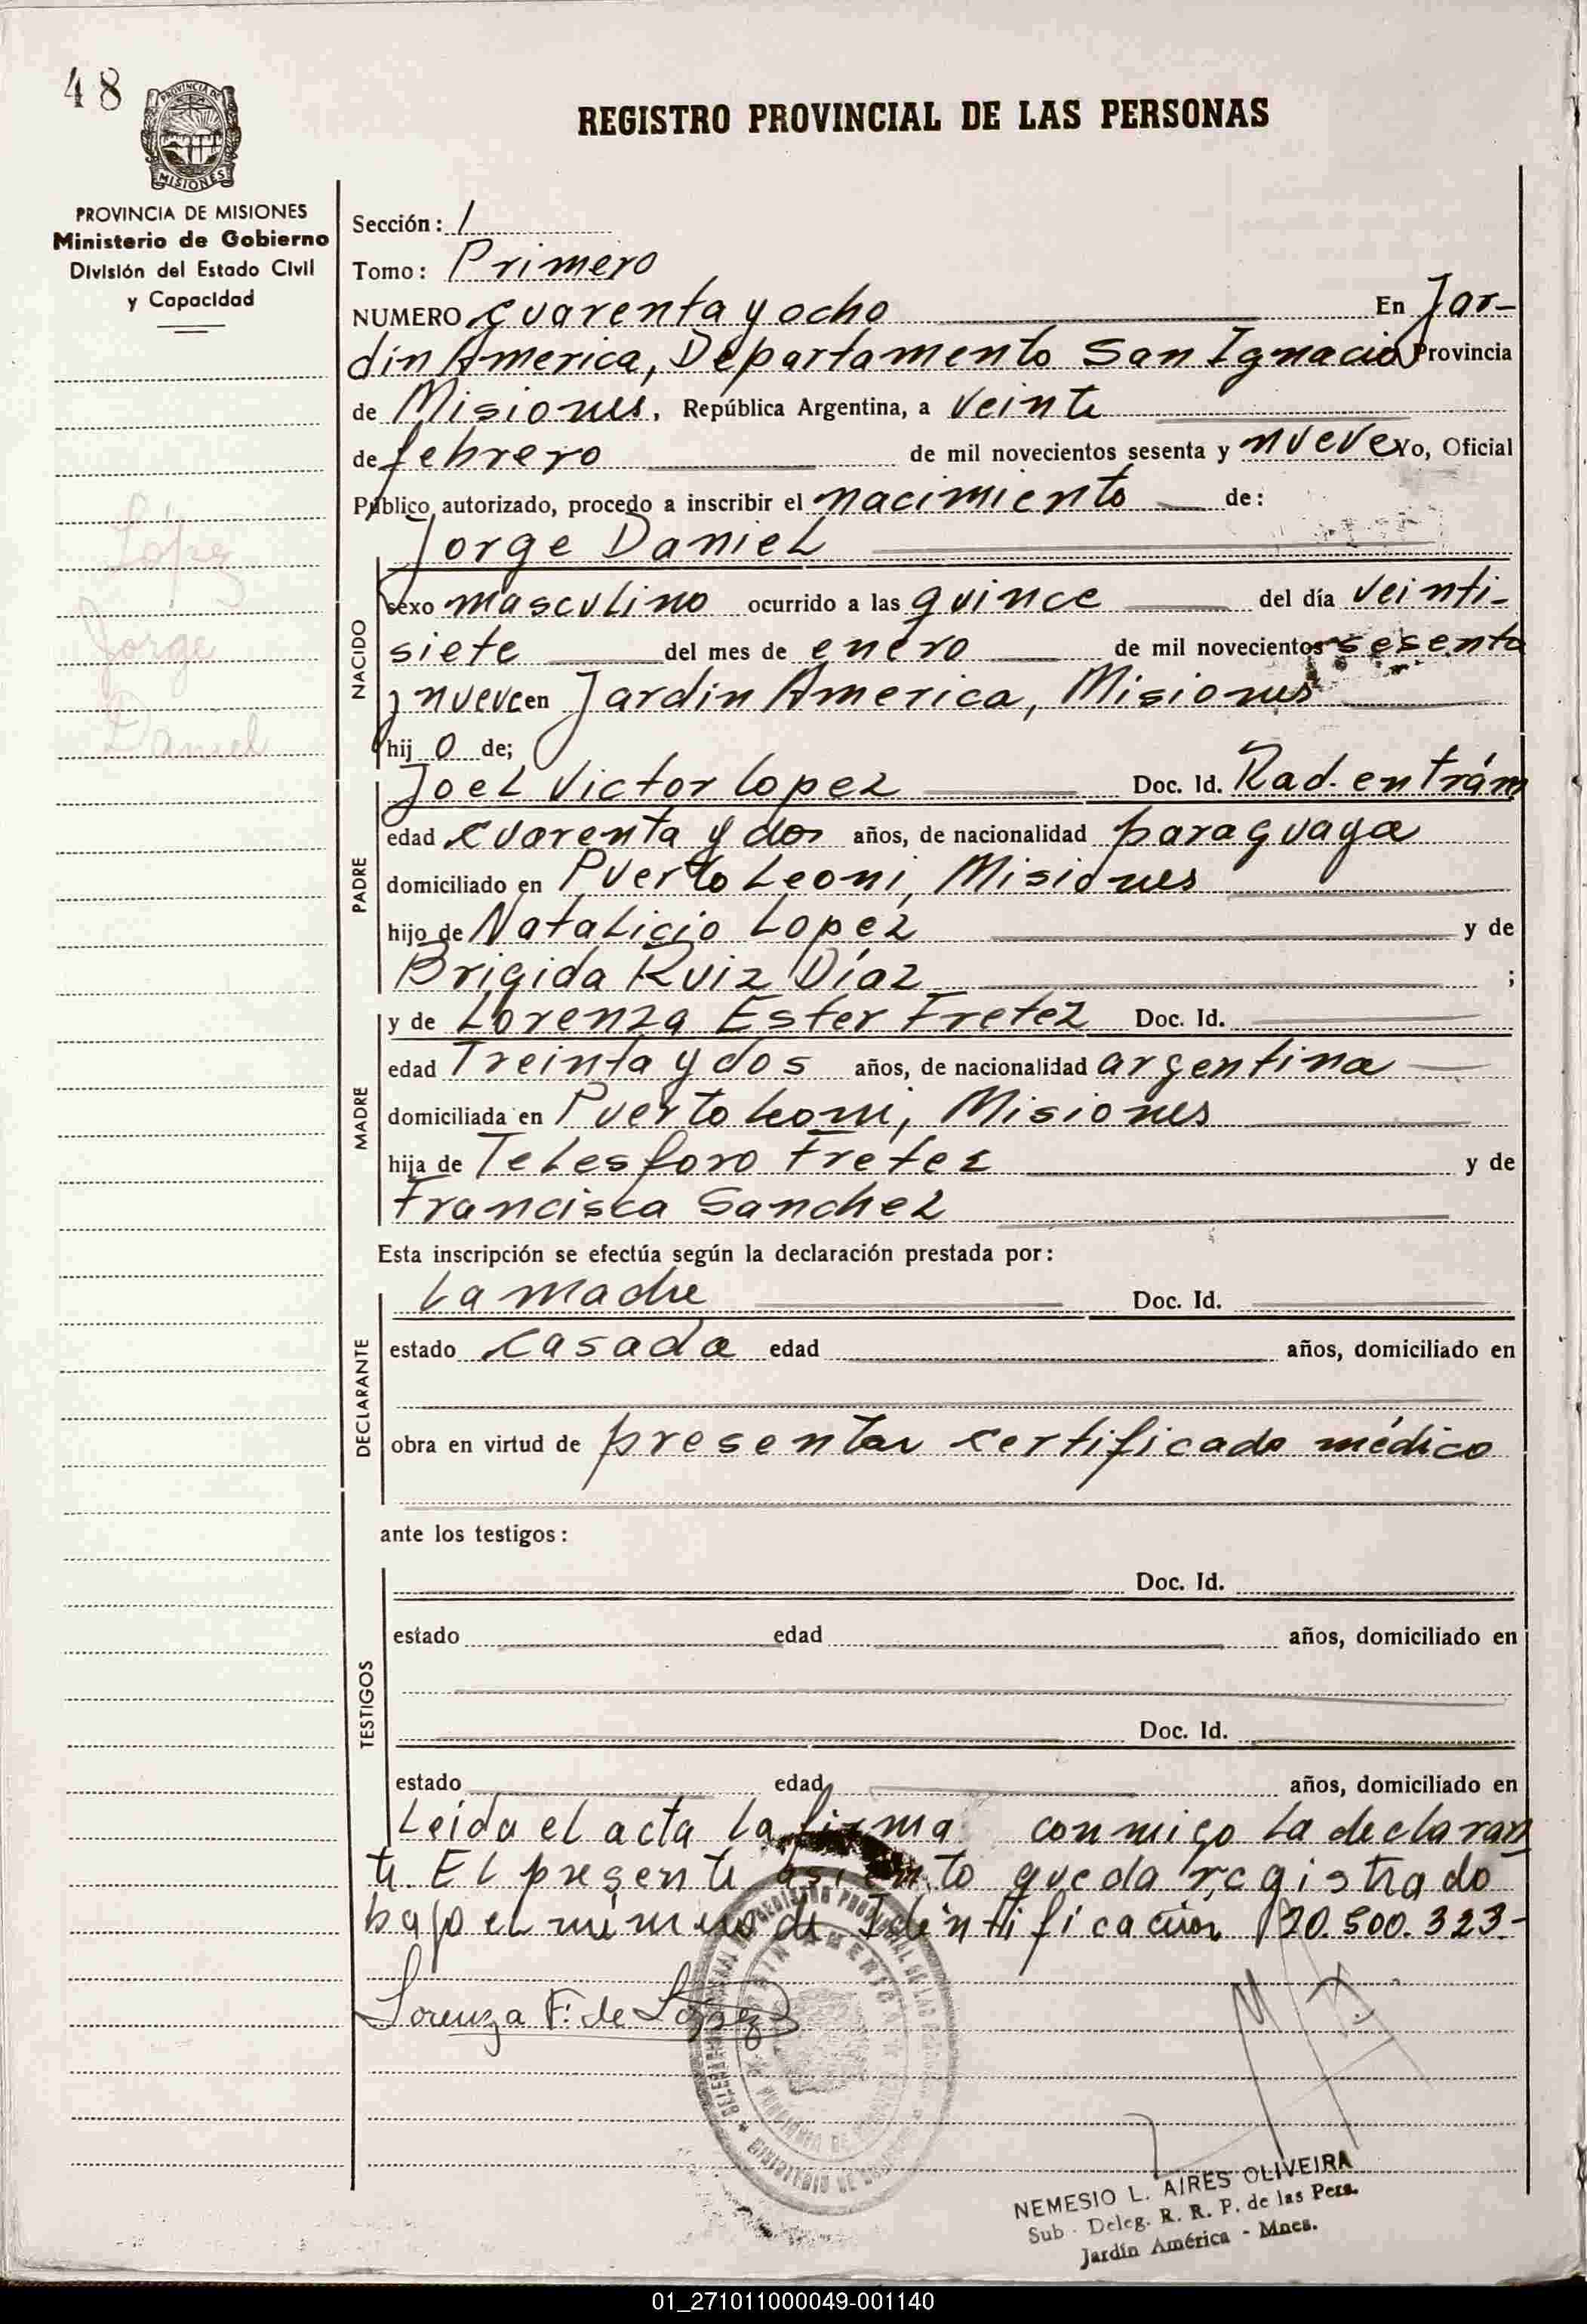 48
PROVINCIA DE
MISIONES
PROVINCIA DE MISIONES
Ministerio de Gobierno
División del Estado Civil
y Capacidad
López
Jorge
Daniel
REGISTRO PROVINCIAL DE LAS PERSONAS
Sección: 1
Tomo: Primero
NUMERO cuarenta y ocho En Jar-
din America, Departamento San Ignacio Provincia
de Misiones, República Argentina, a veinte
de febrero de mil novecientos sesenta y nueve Yo, Oficial
Público autorizado, procedo a inscribir el nacimiento de:
Jorge Daniel
NACIDO
sexo masculino ocurrido a las quince del día veinti-
siete del mes de enero de mil novecientos sesenta
y nueve en Jardin America, Misiones
hij o de;
PADRE
Joel Victor Lopez Doc. Id. Rad. en trám
edad cuarenta y dos años, de nacionalidad paraguaya
domiciliado en Puerto Leoni, Misiones
hijo de Natalicio Lopez y de
Brigida Ruiz Díaz ;
MADRE
y de Lorenza Ester Fretez Doc. Id.
edad Treinta y dos años, de nacionalidad argentina
domiciliada en Puerto Leoni, Misiones
hija de Telesforo Fretez y de
Francisca Sanchez
Esta inscripción se efectúa según la declaración prestada por:
DECLARANTE
La madre Doc. Id.
estado casada edad años, domiciliado en
obra en virtud de presentar certificado médico
ante los testigos:
TESTIGOS
Doc. Id.
estado edad años, domiciliado en
Doc. Id.
estado edad años, domiciliado en
Leída el acta la firma conmigo la declaran
te. El presente asiento queda registrado
bajo el número de Identificación 20.500.323-
Lorenza F. de López
NEMESIO L. AIRES OLIVEIRA
Sub - Deleg. R. R. P. de las Pers.
Jardín América - Mnes.
01_271011000049-001140